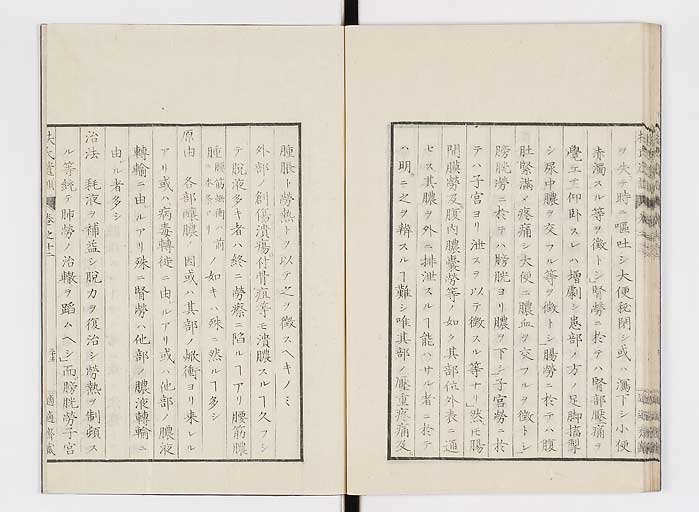 ヲ失フ時ニ嘔吐シ大便秘閉シ或ハ瀉下シ小便
赤濁スル等ヲ徴トシ」腎勞ニ於テハ腎部壓痛ヲ
覺エ仰臥スレハ增劇シ患部ノ方ノ足脚搐掣
シ尿中膿ヲ交フル等ヲ徴トシ」腸勞ニ於テハ腹
肚緊滿〆疼痛シ大便ニ膿血ヲ交フルヲ徴トシ
膀胱勞ニ於テハ膀胱ヨリ膿ヲ下シ子宮勞ニ於
テハ子宮ヨリ泄スヲ以テ徴スル等ナリ」然モ腸
間膜勞及腹内膿囊勞等ノ如ク其部位外表ニ通
セス其膿ヲ外ニ排泄スルヿ能ハサル者ニ於テ
ハ明ニ之ヲ辨スルヿ難シ唯其部ノ壓重疼痛及
腫脹ト勞熱トヲ以テ之ヲ徴スヘキノミ
外部ノ創傷潰瘍骨疽等モ潰膿スルヿ久フシ
テ脱液多キ者ハ終ニ勞瘵ニ陷ルヿアリ腰筋膿
腫ノ如キハ殊ニ然ルヿ多シ
原由 各部釀膿ノ因或ハ其部ノ焮衝ヨリ來レル
アリ或ハ病毒轉徙ニ由ルアリ或ハ他部ノ膿液
轉輸ニ由ルアリ殊ニ腎勞ハ他部ノ膿液轉輸ニ
由ル者多シ
治法 耗液ヲ補益シ脱力ヲ復治シ勞熱ヲ制頻ス
ル等統テ肺勞ノ治轍ヲ蹈ムヘシ」而膀胱勞子宮
扶氏遺訓 卷之十二
適適齋藏